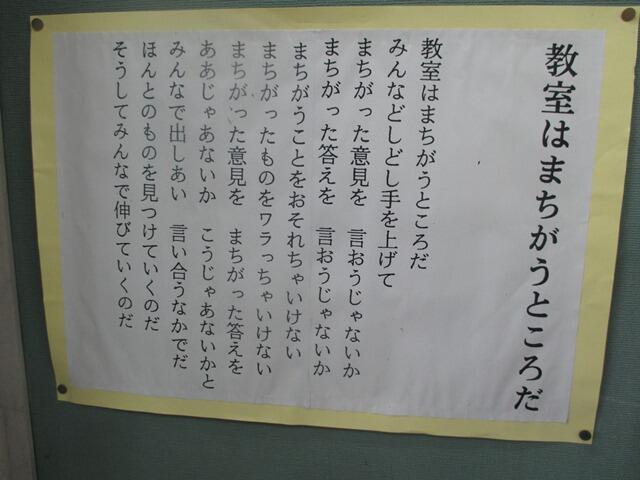 教室はまちがうところだ
教室はまちがうところだ
みんなどしどし手を上げて
まちがった意見を 言おうじゃないか
まちがった答えを 言おうじゃないか
まちがうことをおそれちゃいけない
まちがったものをワラっちゃいけない
まちがった意見を まちがった答えを
ああじゃあないか こうじゃあないかと
みんなで出しあい 言い合うなかでだ
ほんとのものを見つけていくのだ
そうしてみんなで伸びていくのだ